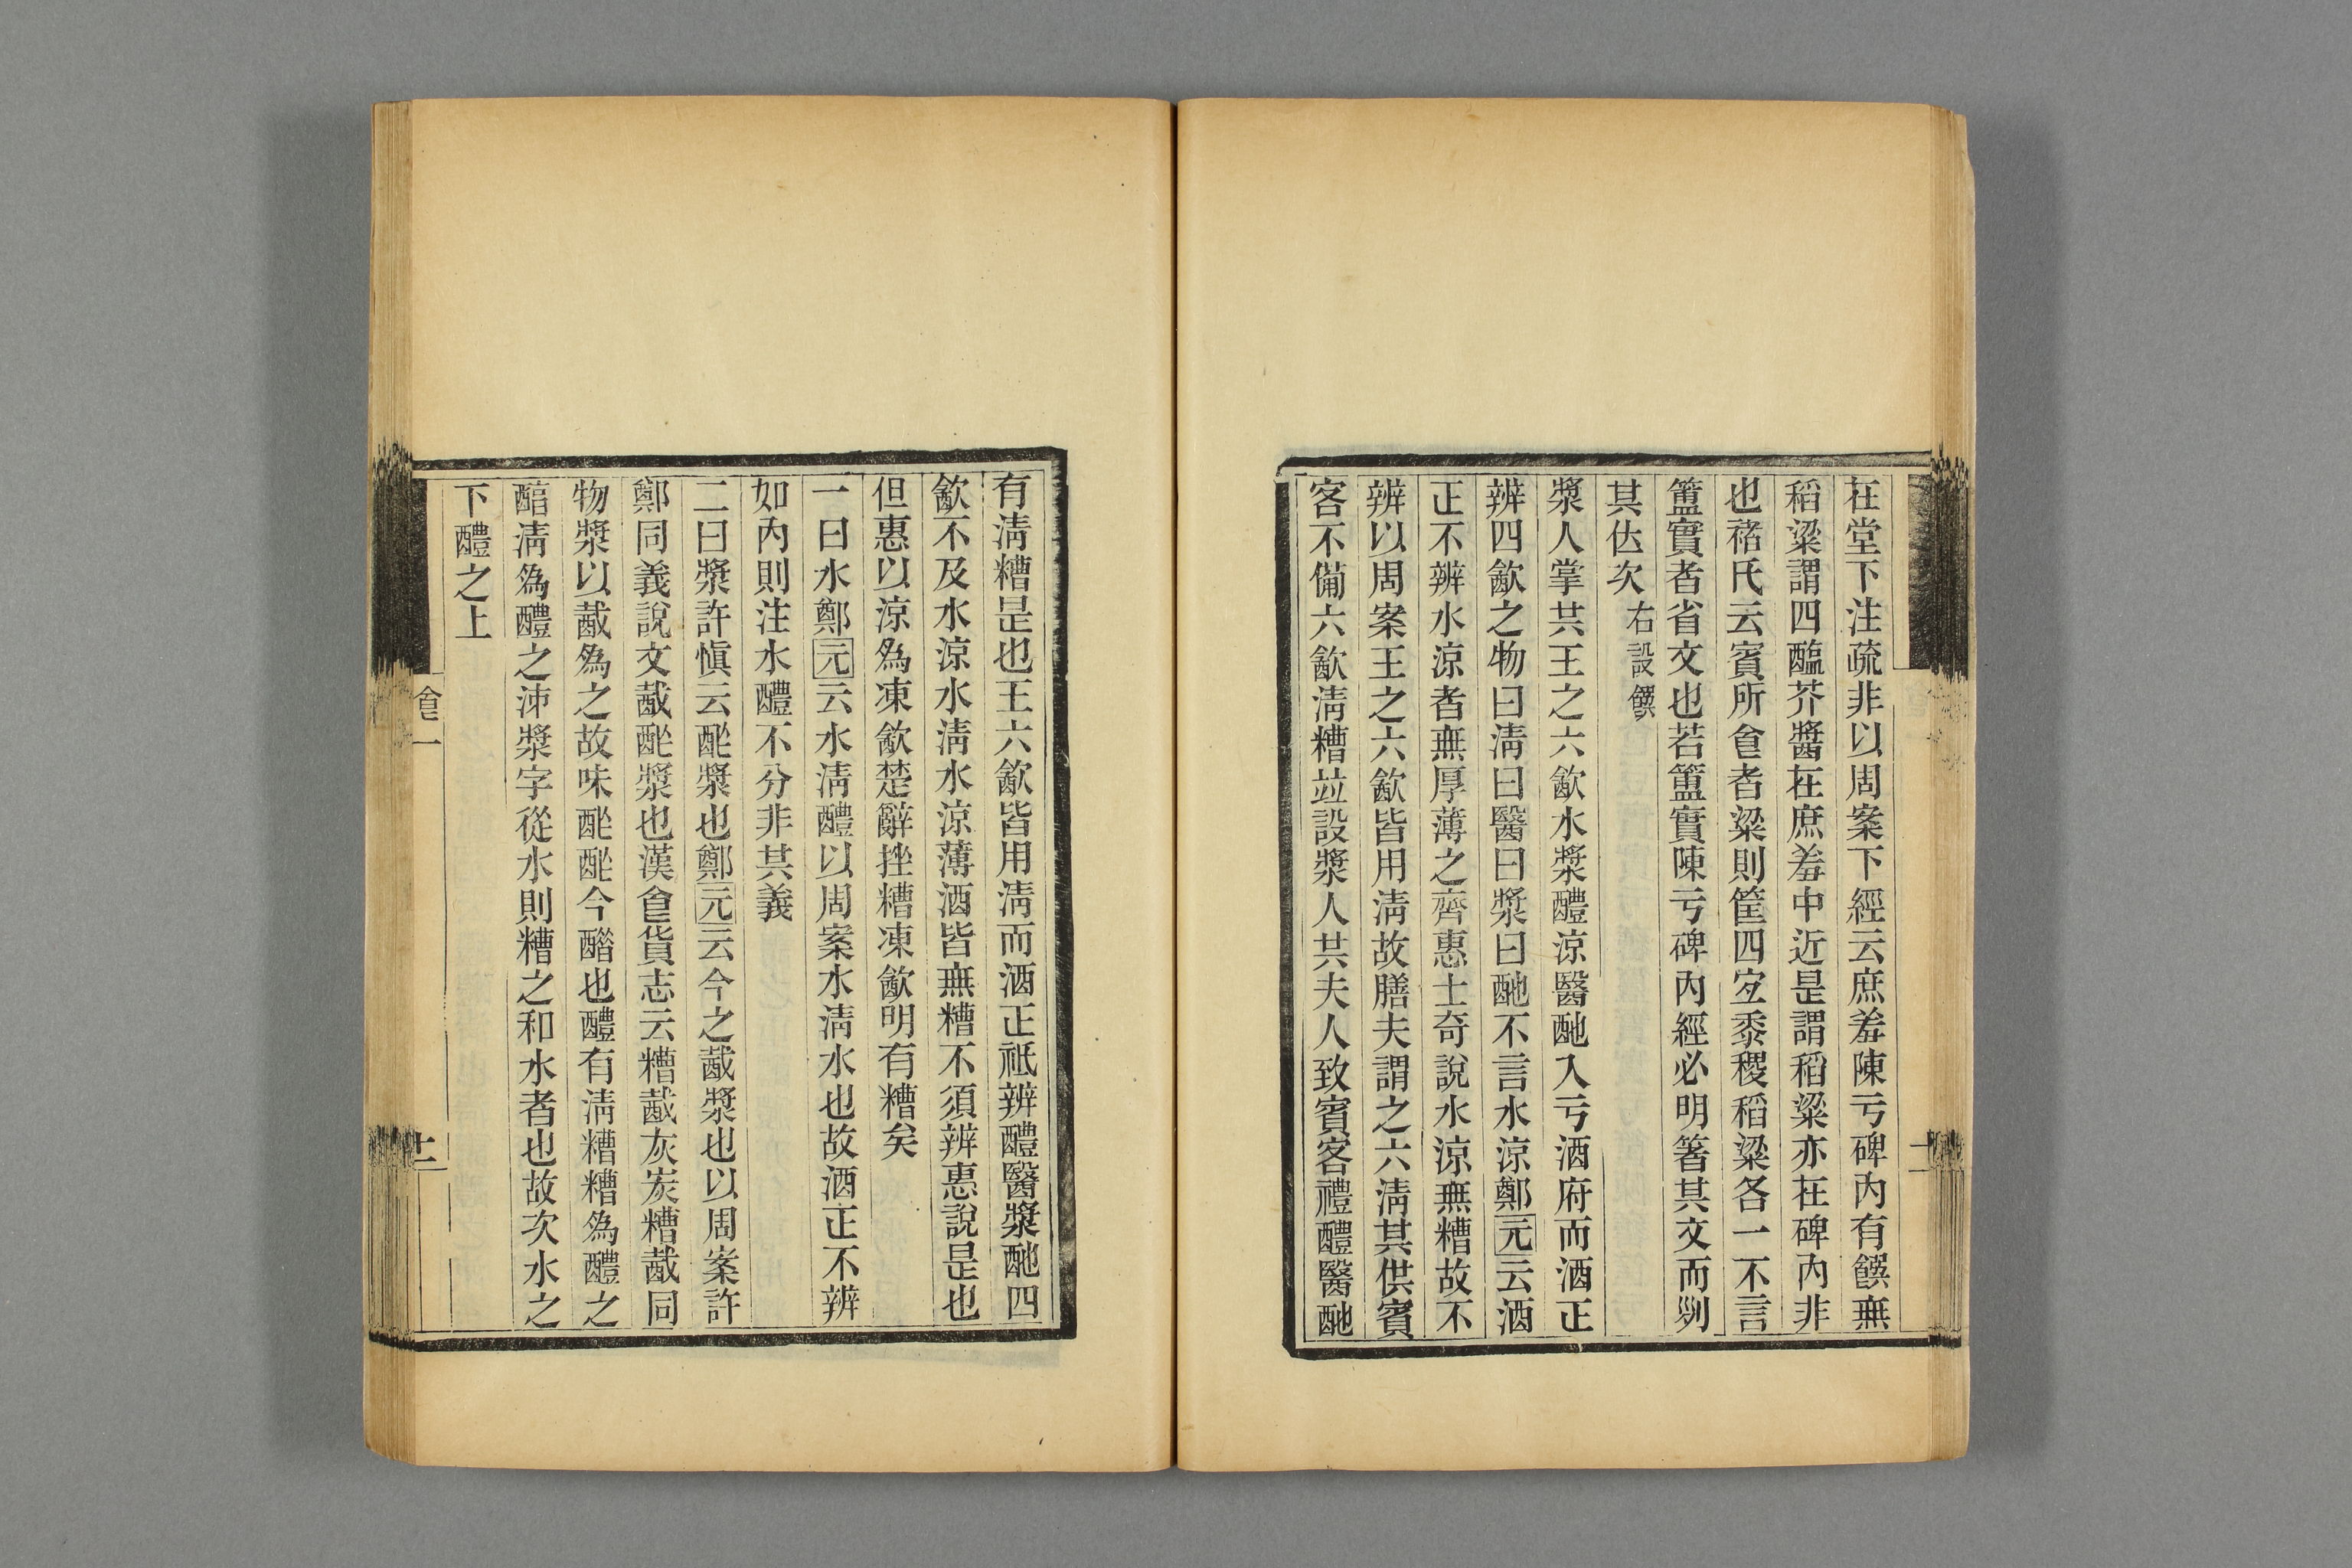 在堂下注疏非以周案下經云庶羞陳亏碑內有饌無
稻粱謂四醢芥醬在庶羞中近是謂稻粱亦在碑內非
也褚氏云賓所食者粱則筐四实黍稷稻粱各一不言
簠實者省文也若簠實陳亏碑內經必明箸其文而剡
其佐次右設饌
漿人掌共王之六飲水漿醴涼醫酏入亏酒府而酒正
辨四飲之物曰淸曰醫曰漿曰酏不言水涼鄭元云酒
正不辨水涼者無厚薄之齊惠士奇說水涼無糟故不
辨以周案王之六飲皆用淸故膳夫謂之六淸其供賓
客不備六飲淸糟竝設漿人共夫人致賓客禮醴醫酏
有淸糟是也王六飲皆用淸而酒正祗辨醴醫漿酏四
飲不及水涼水淸水涼薄酒皆無糟不須辨惠說是也
但惠以涼爲凍飲楚辭挫糟凍飲明有糟矣
一曰水鄭元云水淸醴以周案水淸水也故酒正不辨
如內則注水醴不分非其義
二曰漿許愼云酢漿也鄭元云今之酨漿也以周案許
鄭同義說文酨酢漿也漢食貨志云糟酨灰炭糟酨同
物漿以酨爲之故味酢酢今醋也醴有淸糟糟爲醴之
䤃淸爲醴之沛漿字從水則糟之和水者也故次水之
下醴之上
食一
十二